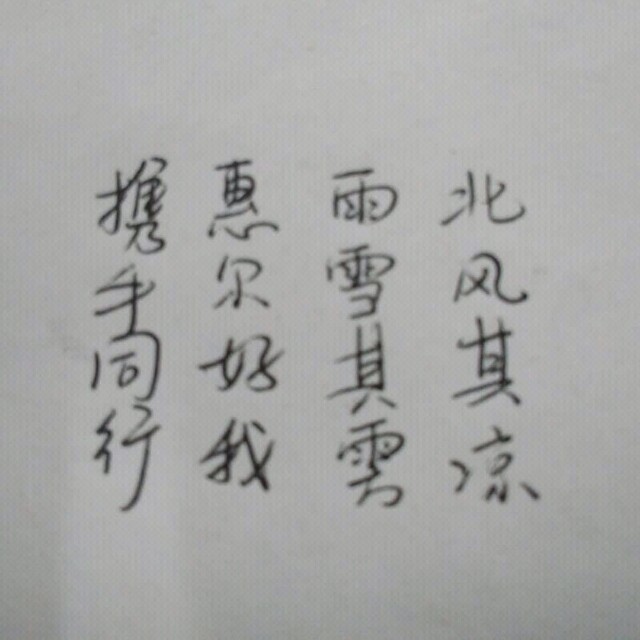 北风其凉
雨雪其雱
惠尔好我
携手同行